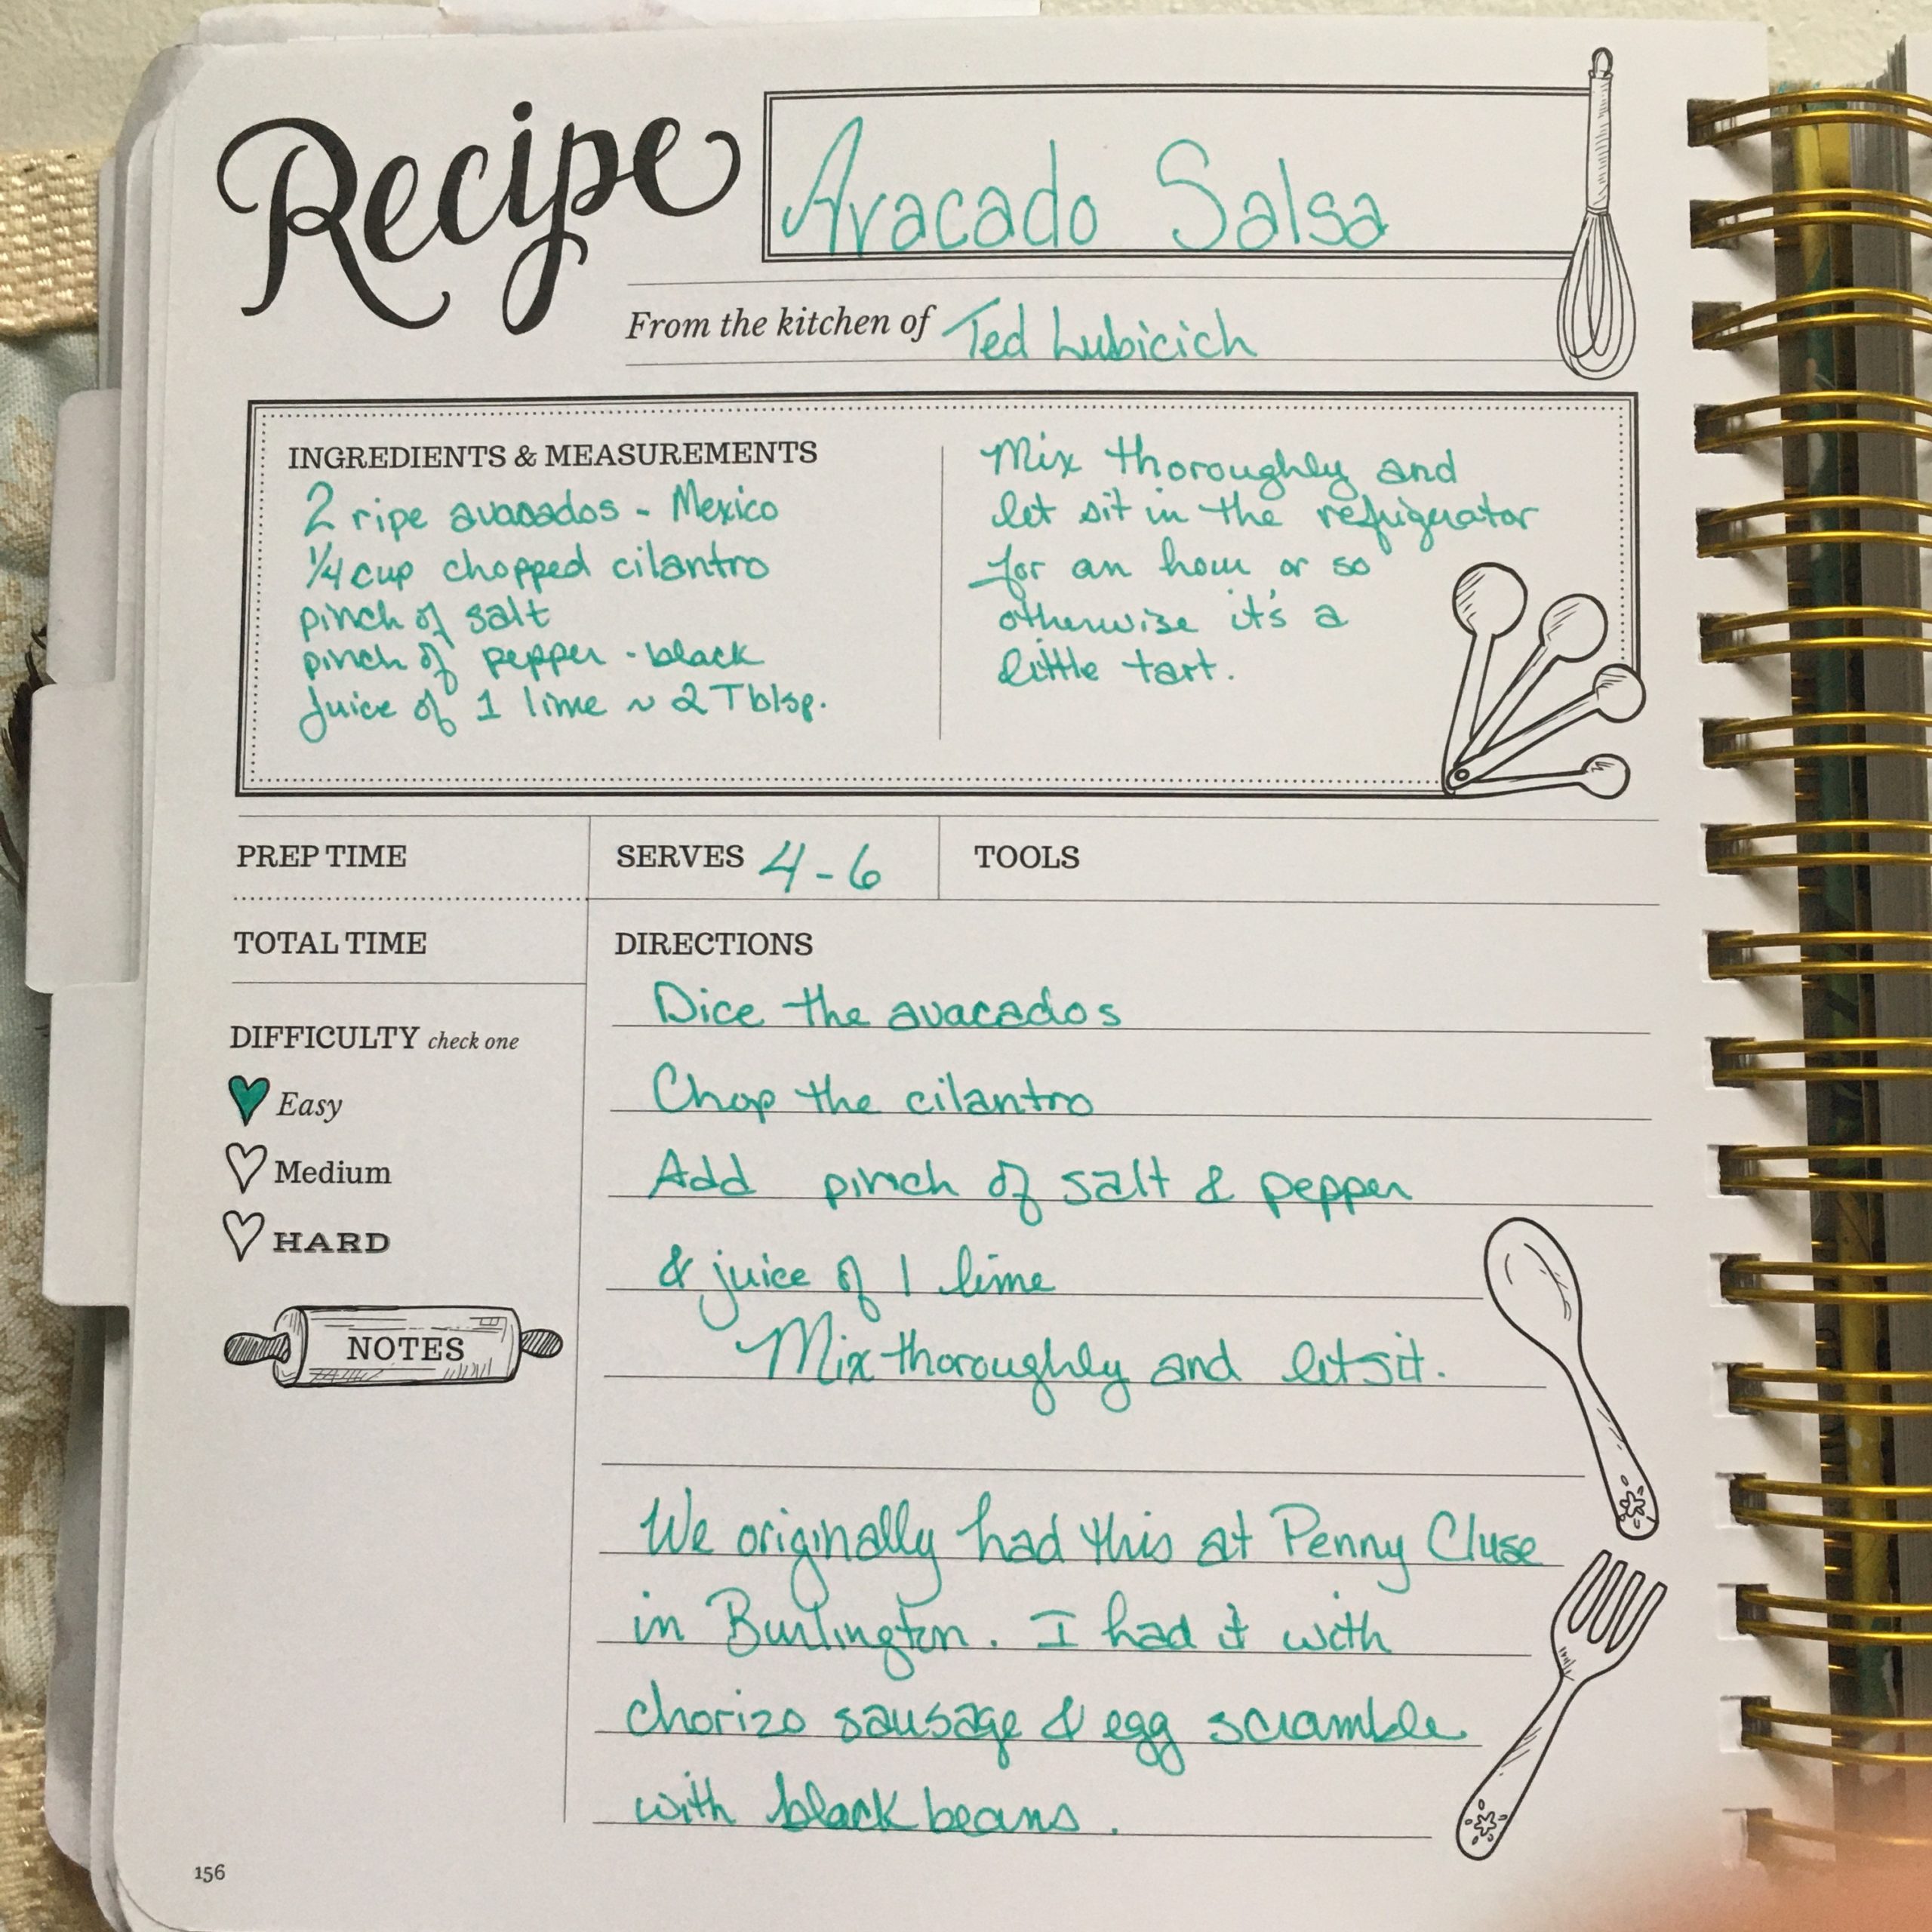 Recipe
Avacado Salsa
From the kitchen of Ted Lubicich
INGREDIENTS & MEASUREMENTS
2 ripe avacados - Mexico
1/4 cup chopped cilantro
pinch of salt
pinch of pepper - black
Juice of 1 lime ~ 2 Tblsp.
Mix thoroughly and
let sit in the refrigerator
for an hour or so
otherwise it's a
little tart.
PREP TIME
SERVES 4-6
TOOLS
TOTAL TIME
DIFFICULTY check one
Easy
Medium
HARD
NOTES
DIRECTIONS
Dice the avacados
Chop the cilantro
Add pinch of salt & pepper
& juice of 1 lime
Mix thoroughly and let sit.
We originally had this at Penny Cluse
in Burlington. I had it with
chorizo sausage & egg scramble
with black beans.
156